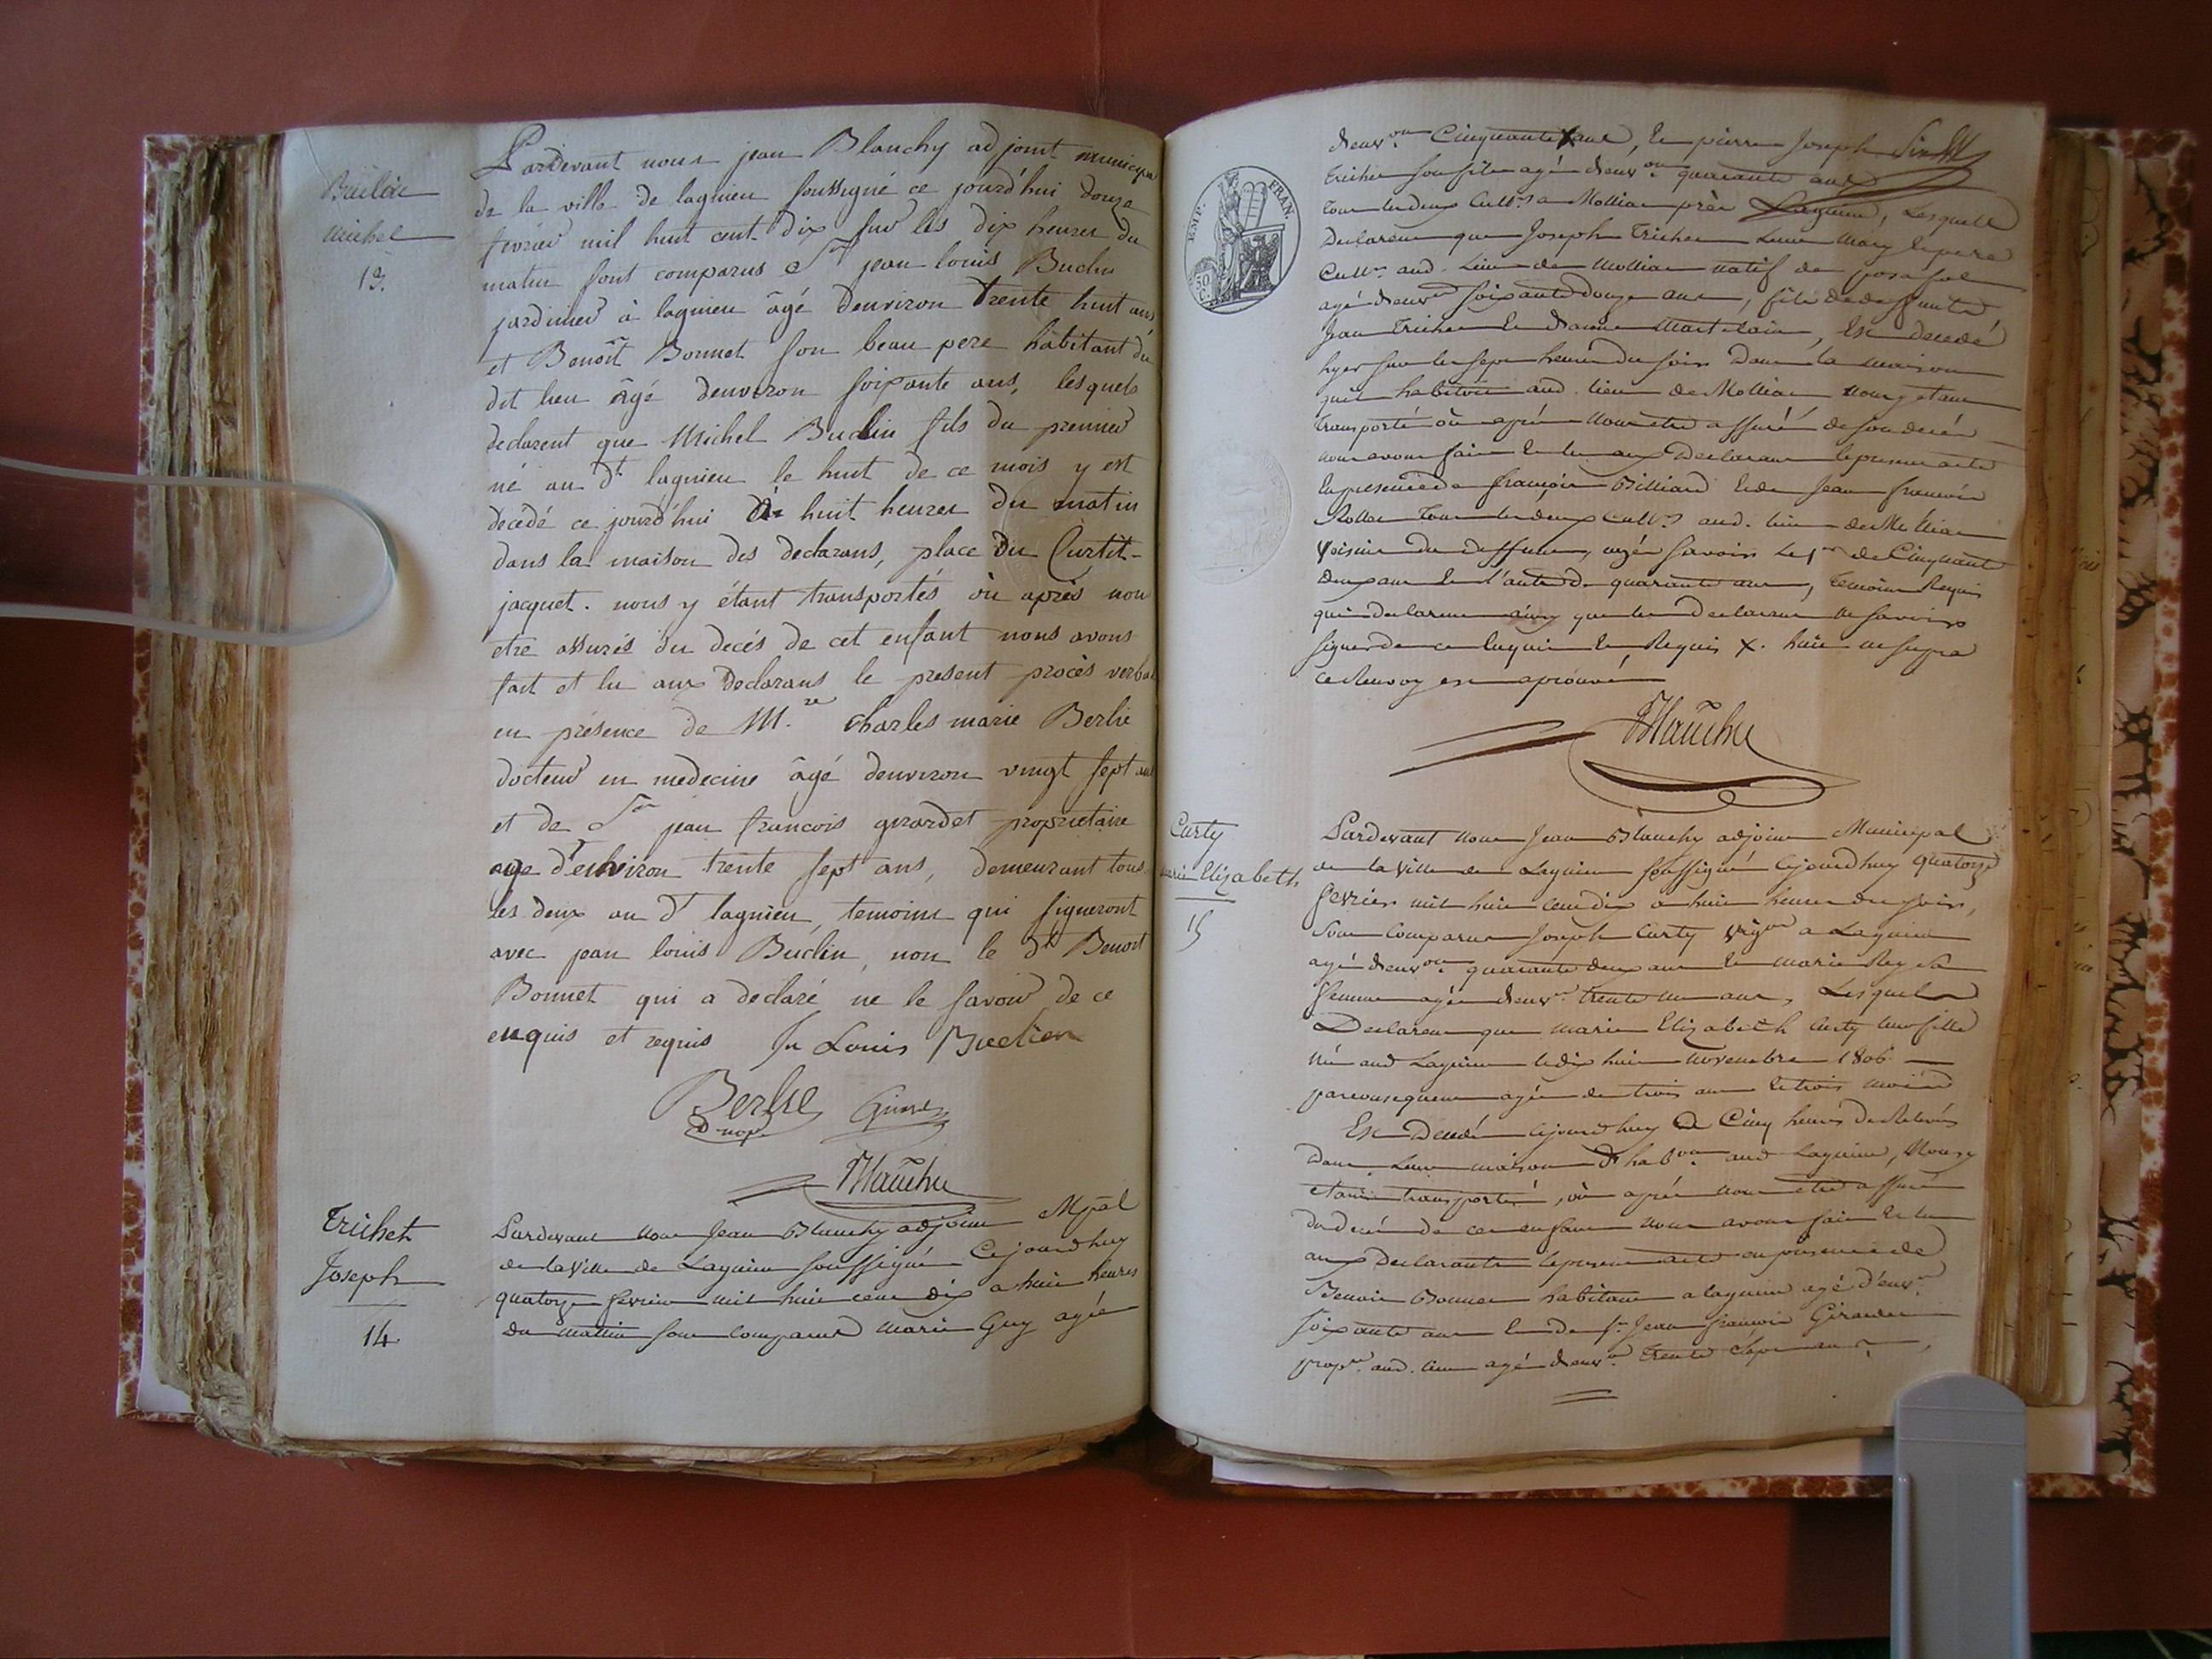 Buclin
Michel
13.
Pardevant nous jean Blanchy adjoint municipal
de la ville de lagnieu soussigné ce jourd'hui douze
fevrier mil huit cent dix sur les dix heures du
matin sont comparus Sr jean louis Buclin
jardinier à lagnieu âgé denviron trente huit ans
et Benoît Bonnet son beau pere habitant du
dit lieu âgé denviron soixante ans, lesquels
declarent que Michel Buclin fils du premier
né au dt lagnieu le huit de ce mois y est
decédé ce jourd'hui à huit heures du matin
dans la maison des declarans, place du Curtit-
jacquet. nous y étant transportés où après nous
etre assurés du decés de cet enfant nous avons
fait et lu aux declarans le present procès verbal
en présence de M.re charles marie Berlie
docteur en medecine âgé denviron vingt sept ans
et de Sr jean francois girardet proprietaire
age d'environ trente sept ans, demeurant tous
les deux au dt lagnieu, temoins qui signeront
avec jean louis Buclin, non le dt Benoit
Bonnet qui a declaré ne le savoir de ce
enquis et requis Jn Louis Buclien
Berlie
Blanchy
Trichet
Joseph
14
Pardevant nous Jean Blanchy adjoint Mpal
de la Ville de Lagnieu soussigné Cejourdhuy
quatorze fevrier mil huit cent dix a huit heures
du matin sont comparus marie Guy agée
EMP. FRAN.
50 C.
denvon Cinquante X ans, et pierre Joseph
trichet son fils agé denvon quarante ans
tous les deux Cultrs a Mollias près Lagnieu, Lesquels
Declarent que Joseph Trichet Leur Mary et pere
Cultr aud. Lieu de Mollias natif de posafol
agé denvon soixante douze ans, fils de deffunts
Jean Trichet et Damme, Est decedé
hyer sur les sept heures du soir Dans la maison
qu'il habitoit aud. lieu de Mollias nous y etant
transporté où après nous etre assuré de son decés
nous avons fait et lu aux Declarans le present acte
En presence de françois Billiard et de Jean francois
Rollet tous les deux Cultrs aud. lieu de Mollias
Voisins du deffunt, agés savoir Le pr de Cinquante
deux ans et l'autre de quarante ans, temoins Requis
qui declarent ainsy que les Declarans ne savoir
signer de ce Enquis et Requis X. huit ut supra
ce Renvoy est aprouvé
Blanchy
Curty
marie Elizabeth
15
Pardevant nous Jean Blanchy adjoint Municipal
de la Ville de Lagnieu soussigné Cejourdhuy quatorze
fevrier mil huit cent dix a huit heures du soir,
sont Comparus Joseph Curty vigon a Lagnieu
agé denvon quarante deux ans et marie Rey sa
femme agée denvon trente un ans, Lesquels
Declarent que marie Elizabeth Curty leur fille
née aud Lagnieu le dix huit novembre 1806
par consequent agée de trois ans et trois mois
Est Decedé cejourdhuy a Cinq heures de Relevés
dans leur maison d'habon aud Lagnieu, Nous y
etant transporté, où après nous etre assuré
du decés de cet enfant nous avons fait et lu
aux Declarants le present acte en presence de
Benoit Bonnet habitant a lagnieu agé d'envon
soixante ans et de Sr Jean francois Girardet
propre aud. lieu agé denvon trente sept ans,